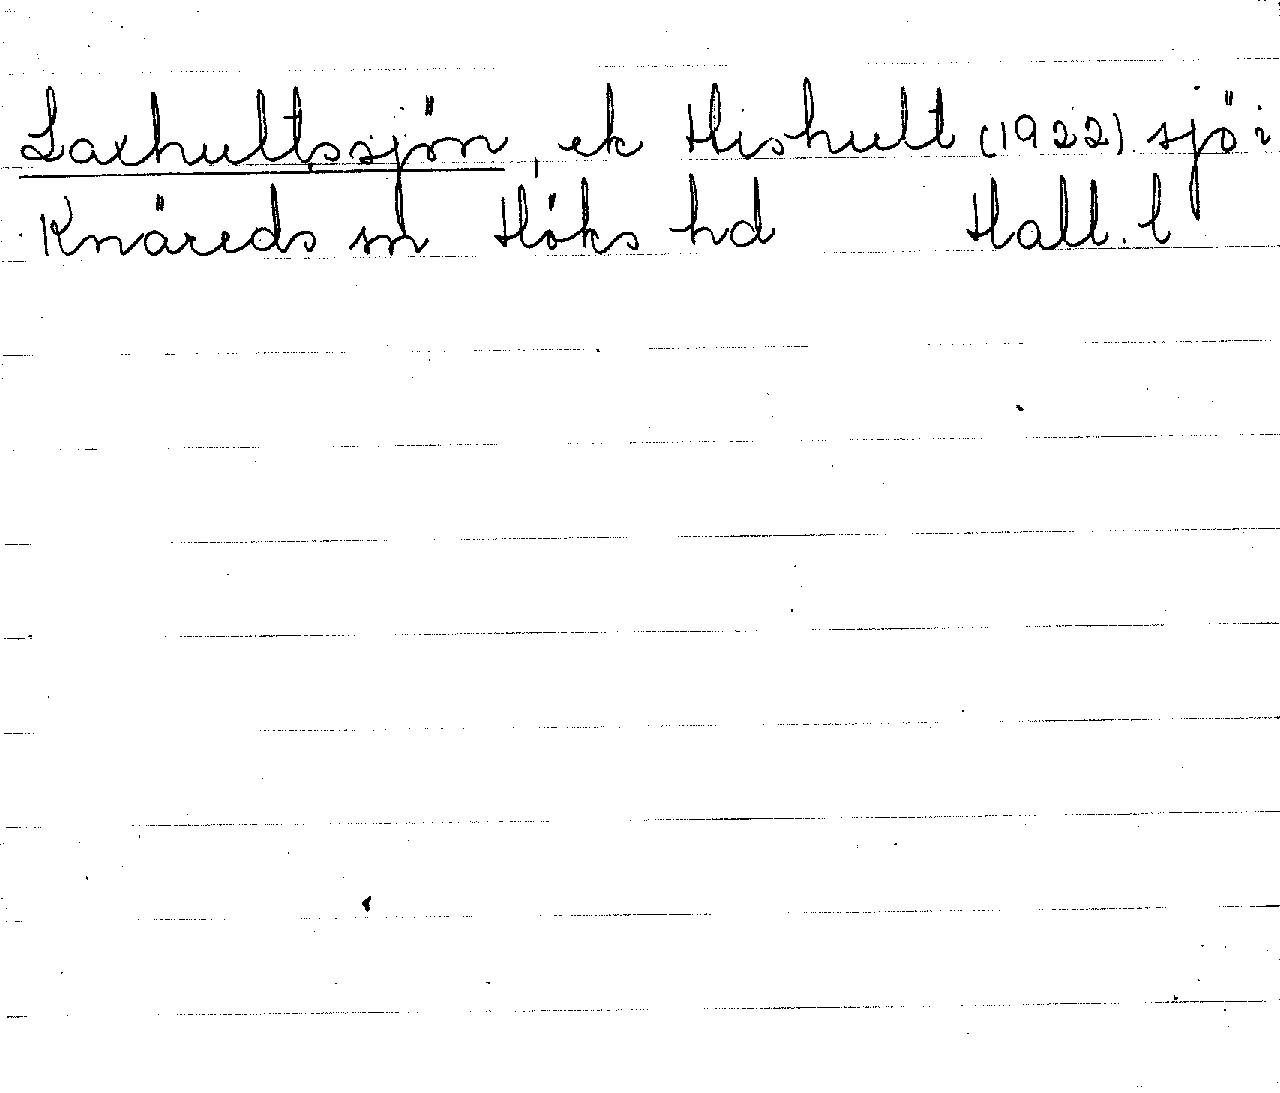 Laxhultssjön, ek Hishult (1922) sjö i
Knäreds sn Höks hd Hall. l